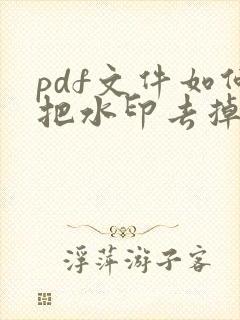 pdf文件如何
把水印去掉
浮萍游子客